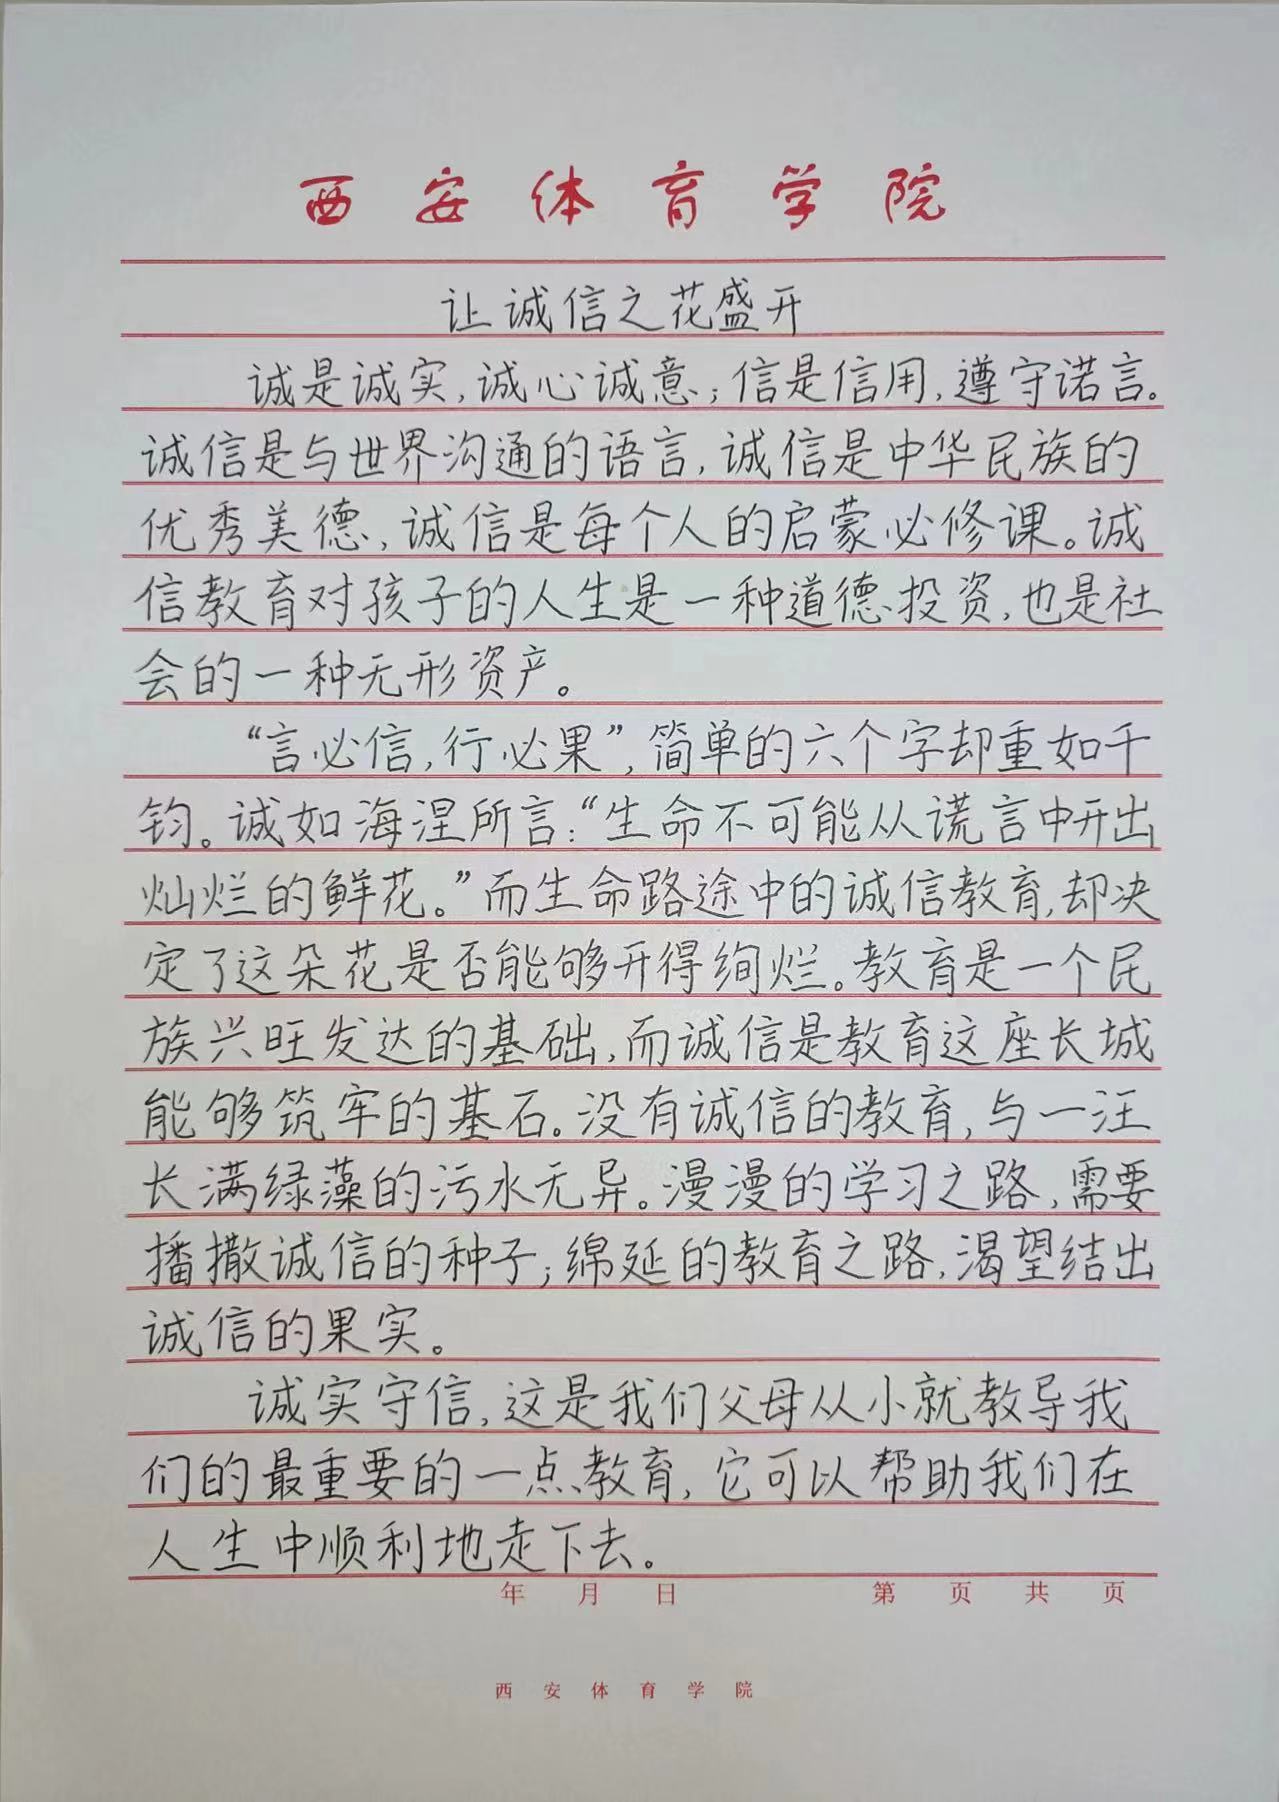 西安体育学院
让诚信之花盛开
诚是诚实，诚心诚意；信是信用，遵守诺言。
诚信是与世界沟通的语言，诚信是中华民族的
优秀美德，诚信是每个人的启蒙必修课。诚
信教育对孩子的人生是一种道德投资，也是社
会的一种无形资产。
“言必信，行必果”，简单的六个字却重如千
钧。诚如海涅所言：“生命不可能从谎言中开出
灿烂的鲜花。”而生命路途中的诚信教育，却决
定了这朵花是否能够开得绚烂。教育是一个民
族兴旺发达的基础，而诚信是教育这座长城
能够筑牢的基石。没有诚信的教育，与一汪
长满绿藻的污水无异。漫漫的学习之路，需要
播撒诚信的种子；绵延的教育之路，渴望结出
诚信的果实。
诚实守信，这是我们父母从小就教导我
们的最重要的一点教育，它可以帮助我们在
人生中顺利地走下去。
年 月 日 第 页 共 页
西安体育学院